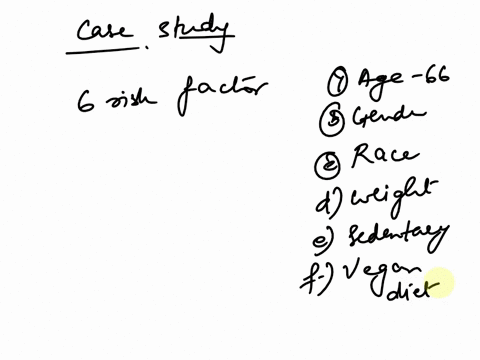 Case study
6 risk factor
Age - 66
Gender
Race
d) weight
e) Sedentary
f) Vegan
diet